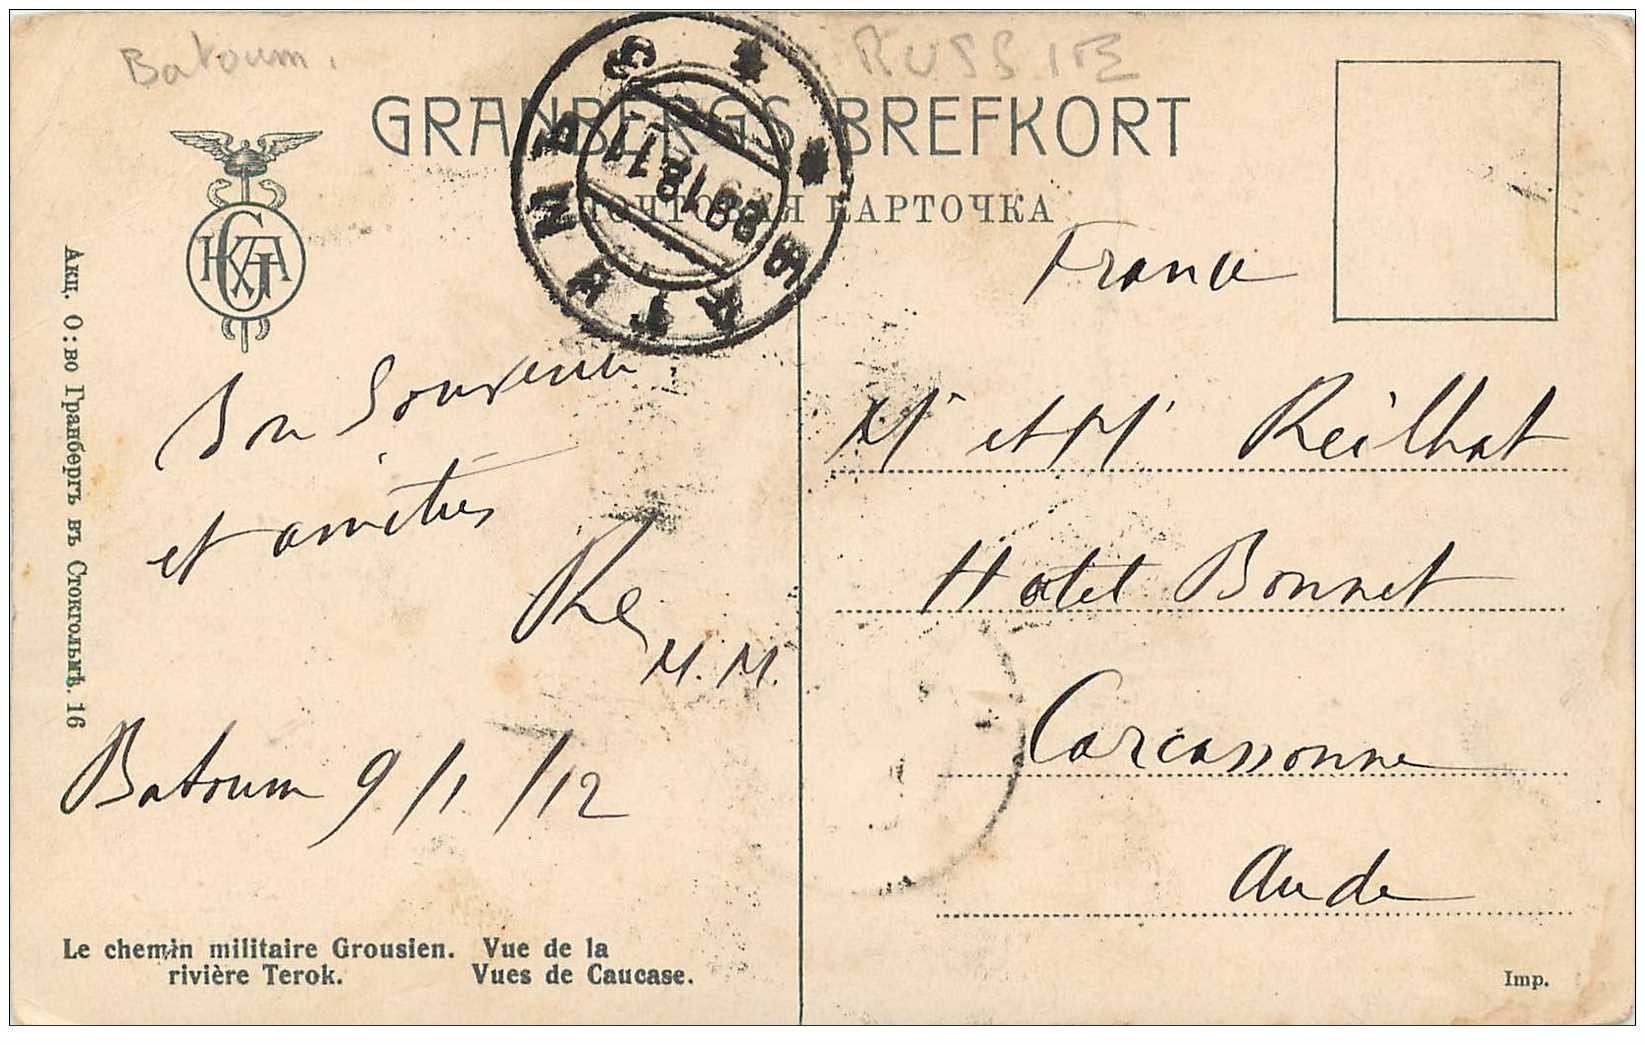 Batoum.
RUSSIE
GRANBERGS BREFKORT
ПОЧТОВАЯ КАРТОЧКА
France
Bon Souvenir
et amitiés
M.M.
Batoum 9/1/12
Mr et Mr Reilhat
Hotel Bonnet
Carcassonne
Aude
Акц. О:во Гранбергъ въ Стокгольмѣ. 16
Le chemin militaire Grousien. Vue de la
rivière Terok. Vues de Caucase.
Imp.